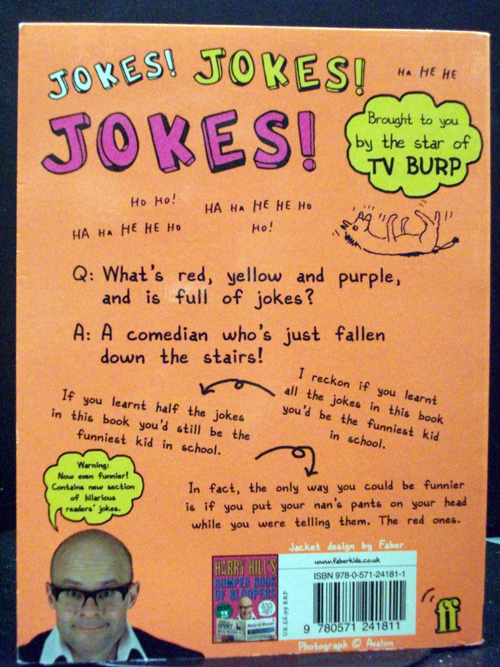 JOKES! JOKES!
HA HE HE
JOKES!
Brought to you
by the star of
TV BURP
HO HO!
HA HA HE HE HO
HA HA HE HE HO
HO!
Q: What's red, yellow and purple,
and is full of jokes?
A: A comedian who's just fallen
down the stairs!
I reckon if you learnt
all the jokes in this book
you'd be the funniest kid
in school.
If you learnt half the jokes
in this book you'd still be the
funniest kid in school.
In fact, the only way you could be funnier
is if you put your nan's pants on your head
while you were telling them. The red ones.
Warning:
Now even funnier!
Contains new section
of hilarious
readers' jokes.
Jacket design by Faber
www.faberkids.co.uk
ISBN 978-0-571-24181-1
HARRY HILL'S
BUMPER BOOK
OF BLOOPERS
UK £6.99 RRP
9 780571 241811
Photograph © Avalon
ff